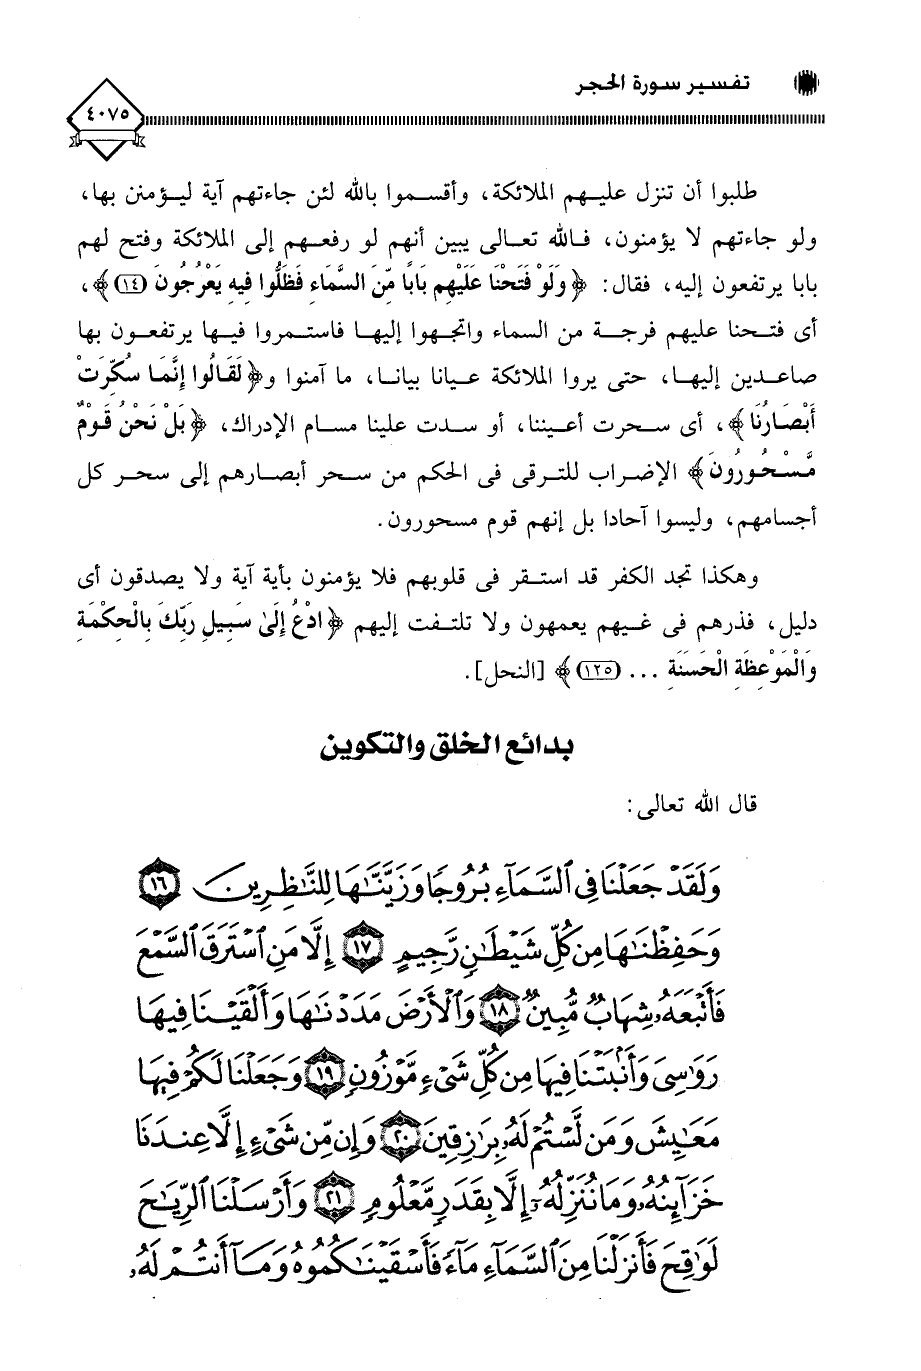 تفسير سورة الحجر
٤٠٧٥
طلبوا أن تنزل عليهم الملائكة، وأقسموا بالله لئن جاءتهم آية ليؤمنن بها،
ولو جاءتهم لا يؤمنون، فالله تعالى يبين أنهم لو رفعهم إلى الملائكة وفتح لهم
بابا يرتفعون إليه، فقال: ﴿وَلَوْ فَتَحْنَا عَلَيْهِم بَابًا مِّنَ السَّمَاءِ فَظَلُّوا فِيهِ يَعْرُجُونَ (١٤)﴾،
أى فتحنا عليهم فرجة من السماء واتجهوا إليها فاستمروا فيها يرتفعون بها
صاعدين إليها، حتى يروا الملائكة عيانا بيانا، ما آمنوا و﴿لَقَالُوا إِنَّمَا سُكِّرَتْ
أَبْصَارُنَا﴾، أى سحرت أعيننا، أو سدت علينا مسام الإدراك، ﴿بَلْ نَحْنُ قَوْمٌ
مَّسْحُورُونَ﴾ الإضراب للترقى فى الحكم من سحر أبصارهم إلى سحر كل
أجسامهم، وليسوا آحادا بل إنهم قوم مسحورون.
وهكذا تجد الكفر قد استقر فى قلوبهم فلا يؤمنون بأية آية ولا يصدقون أى
دليل، فذرهم فى غيهم يعمهون ولا تلتفت إليهم ﴿ادْعُ إِلَىٰ سَبِيلِ رَبِّكَ بِالْحِكْمَةِ
وَالْمَوْعِظَةِ الْحَسَنَةِ ... (١٢٥)﴾ [النحل].
بدائع الخلق والتكوين
قال الله تعالى:
وَلَقَدْ جَعَلْنَا فِي ٱلسَّمَآءِ بُرُوجًا وَزَيَّنَّٰهَا لِلنَّٰظِرِينَ ١٦
وَحَفِظْنَٰهَا مِن كُلِّ شَيْطَٰنٍ رَّجِيمٍ ١٧ إِلَّا مَنِ ٱسْتَرَقَ ٱلسَّمْعَ
فَأَتْبَعَهُۥ شِهَابٌ مُّبِينٌ ١٨ وَٱلْأَرْضَ مَدَدْنَٰهَا وَأَلْقَيْنَا فِيهَا
رَوَٰسِىَ وَأَنۢبَتْنَا فِيهَا مِن كُلِّ شَىْءٍ مَّوْزُونٍ ١٩ وَجَعَلْنَا لَكُمْ فِيهَا
مَعَٰيِشَ وَمَن لَّسْتُمْ لَهُۥ بِرَٰزِقِينَ ٢٠ وَإِن مِّن شَىْءٍ إِلَّا عِندَنَا
خَزَآئِنُهُۥ وَمَا نُنَزِّلُهُۥٓ إِلَّا بِقَدَرٍ مَّعْلُومٍ ٢١ وَأَرْسَلْنَا ٱلرِّيَٰحَ
لَوَٰقِحَ فَأَنزَلْنَا مِنَ ٱلسَّمَآءِ مَآءً فَأَسْقَيْنَٰكُمُوهُ وَمَآ أَنتُمْ لَهُۥ